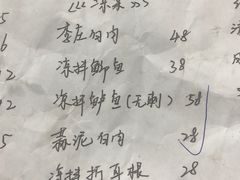 《凉菜》
5
6 李庄白肉 48
2 凉拌鲫鱼 38
2 凉拌鲈鱼(无刺) 58
5 蒜泥白肉 28
凉拌折耳根 28